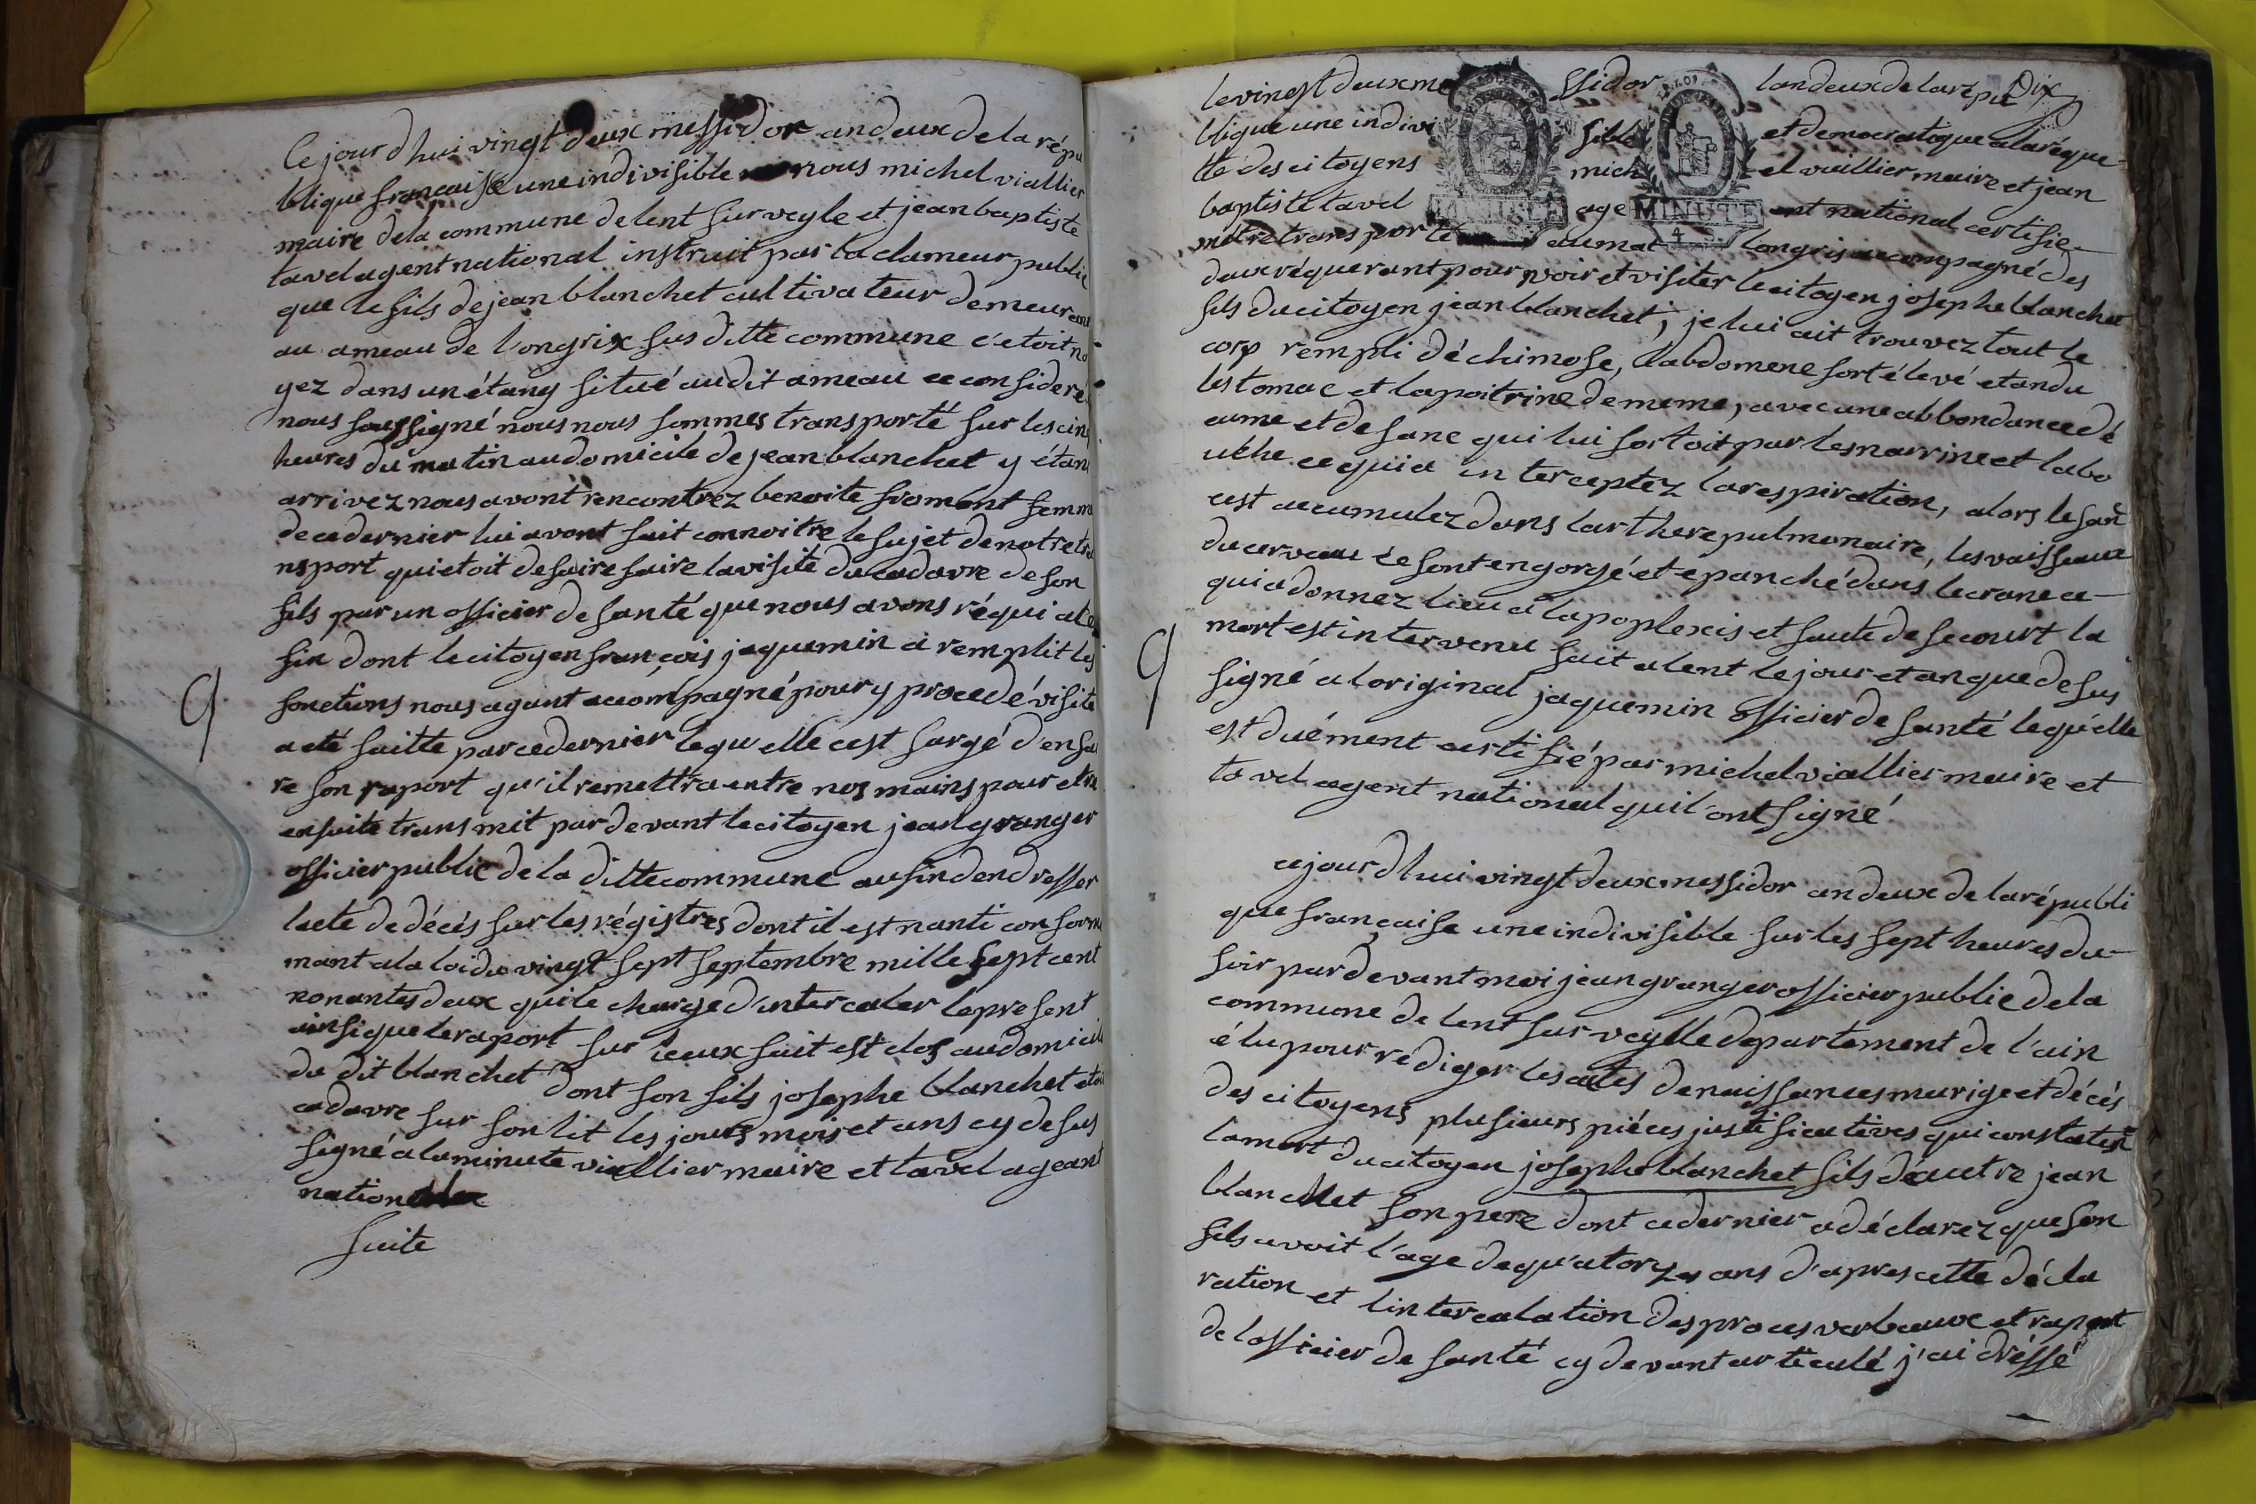 Ce jour d hui vingt deux messidor an deux de la répu
blique française une indivisible nous michel viallier
maire de la commune de lent sur veyle et jean baptiste
tavel agent national instruit par la clameur public
que le fils de jean blanchet cultivateur demeurant
au ameau de longrix sus ditte commune c'etoit no
yez dans un étang situé audit ameau ce consideré
nous soussigné nous nous sommes transporté sur les cinq
heures du matin au domicile de jean blanchet y étant
arrivez nous avont rencontrez benoite froment femme
de ce dernier lui avont fait connoitre le sujet de notre tra
nsport qui etoit de faire faire la visite du cadavre de son
fils par un officier de santé que nous avons réqui a ce
fin dont le citoyen françois jaquemin a remplit les
fonctions nous ayant accompagné pour y procedé visite
a eté faitte par ce dernier lequ'elle c'est sargé d'en fai
re son raport qu'il remettra entre nos mains pour etre
ensuite transmit par devant le citoyen jean granger
officier public de la ditte commune aufin d'en dresser
lacte de décés sur les régistres dont il est nanti conforme
mant a la loi du vingt sept septembre mille sept cent
nonantes deux qui le charge d'intercaler le present
ainsi que le raport sur iceux fait est clos au domicile
du dit blanchet dont son fils josephe blanchet etoit
cadavre sur son lit les jours mois et ans cy desus
signé a la minute viallier maire et tavel ageant
national
suite
Dix
le vingt deux me ssidor lan deux de la répu
blique une indivi sible et democratique a la réque
tte des citoyens mich el viallier maire et jean
baptiste tavel age nt national certifie
MINUTE MINUTE
4
m'etre transporté au ameau longris accompagné des
deux réquerant pour voir et visiter le citoyen josephe blanchet
fils du citoyen jean blanchet, je lui ait trouvez tout le
corp rempli d'échimose, l'abdomene fort élevé etandu
lestomac et la poitrine de meme, avec une abbondance dé
cume et de sanc qui lui sortoit par les narrine et la bo
uche ce qui a interceptez la respiration, alors le sanc
cest accumulez dans larthere pulmonaire, les vaisseaux
du cerveau ce sont engorgé et epanché dans le crane ce
qui a donnez lieu a lapoplexis et faute de secourt la
mort est intervenu fait a lent le jour et an que desus
signé a loriginal jaquemin officier de santé lequ'elle
est duément certifié par michel viallier maire et
tavel agent national quil ont signé
ce jour d hui vingt deux messidor an deux de la républi
que française une indivisible sur les sept heures du
soir par devant moi jean granger officier public de la
commune de lent sur veylle departement de l'ain
élu pour rediger les actes de naissances marige et décés
des citoyens plusieurs piéces justificatives qui constatent
la mort du citoyen josephe blanchet fils d'autre jean
blanchet son pere dont ce dernier a déclarez que son
fils avoit l'age de quatorzes ans d'apres cette décla
ration et lintercalation des proces verbeaux et raport
de lofficier de santé cy devant articulé j'ai dréssé